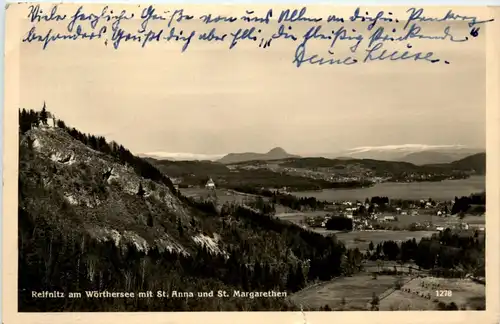 Viele herzliche Grüße von uns Allen an dich,
besonders Grüßt dich aber Elli, „die fleißig strickende"
Deine Luise.
Reifnitz am Wörthersee mit St. Anna und St. Margarethen
1278